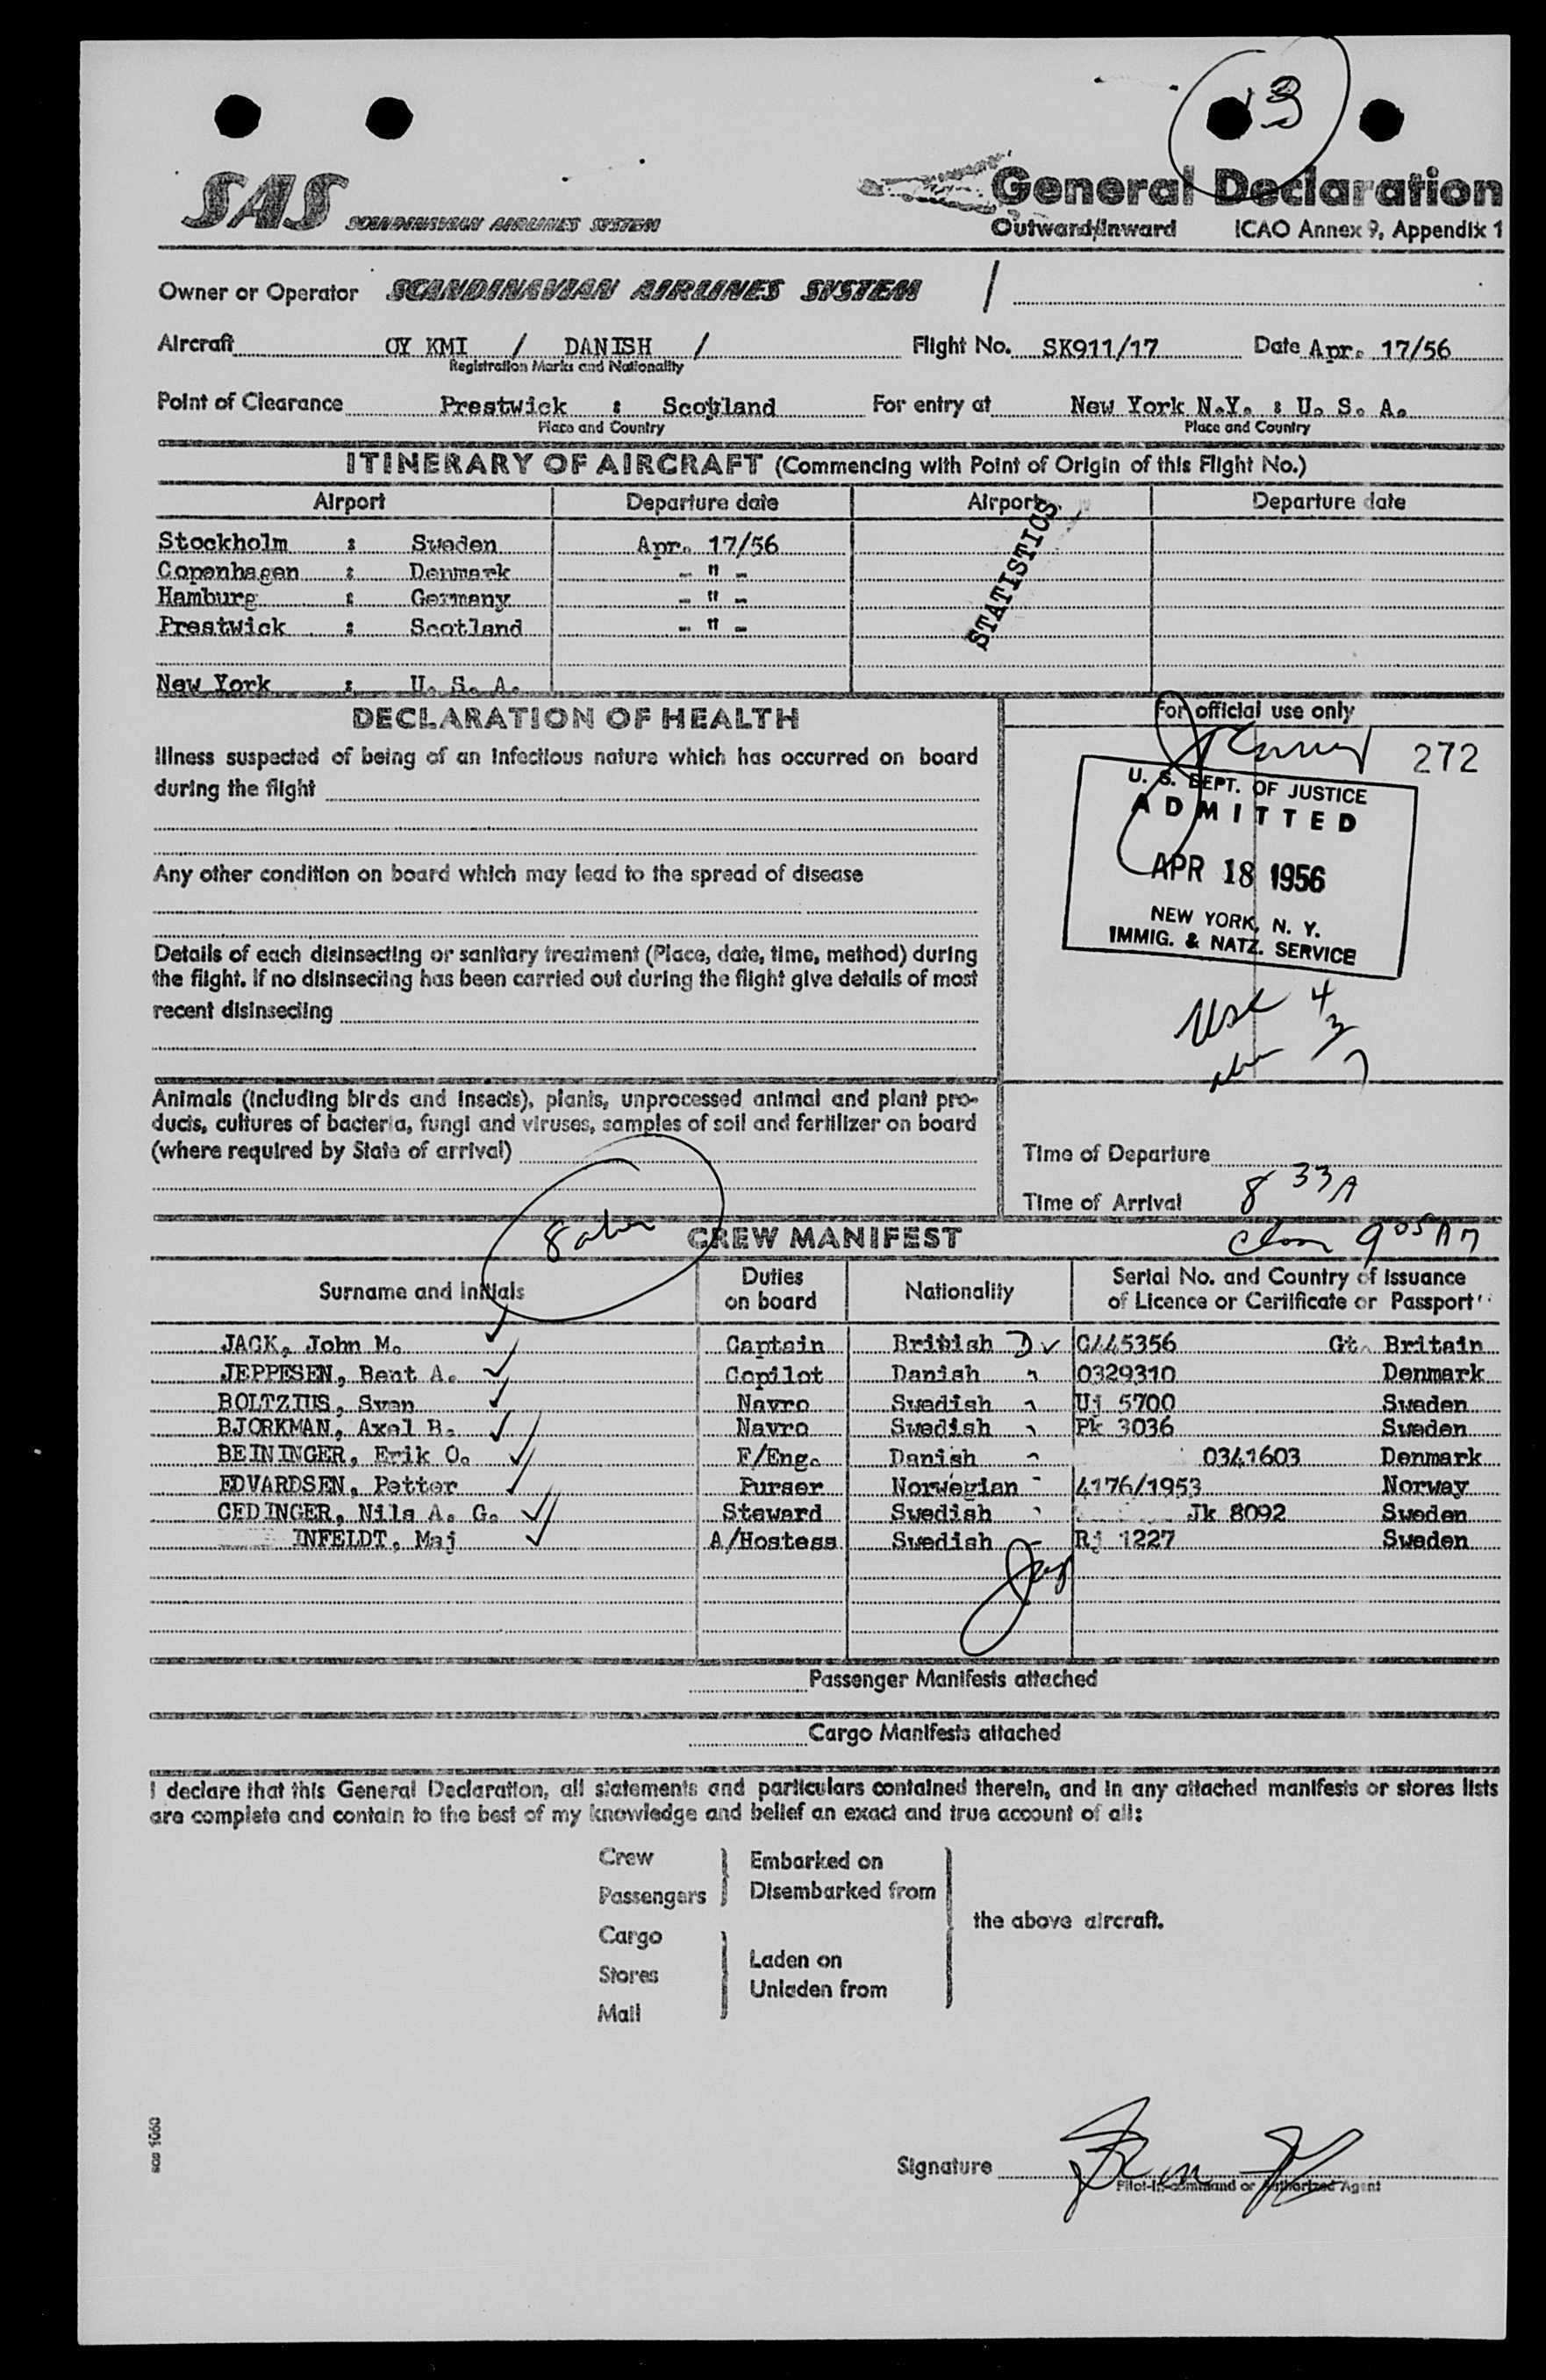 3
SAS SCANDINAVIAN AIRLINES SYSTEM
General Declaration
Outward/Inward ICAO Annex 9, Appendix 1
Owner or Operator SCANDINAVIAN AIRLINES SYSTEM /
Aircraft OY KMI / DANISH / Flight No. SK911/17 Date Apr. 17/56
Registration Marks and Nationality
Point of Clearance Prestwick : Scotland For entry at New York N.Y. : U. S. A.
Place and Country Place and Country
ITINERARY OF AIRCRAFT (Commencing with Point of Origin of this Flight No.)
Airport Departure date Airport Departure date
Stockholm : Sweden Apr. 17/56
Copenhagen : Denmark - " -
Hamburg : Germany - " -
Prestwick : Scotland - " -
STATISTICS
New York : U. S. A.
DECLARATION OF HEALTH
Illness suspected of being of an infectious nature which has occurred on board
during the flight
Any other condition on board which may lead to the spread of disease
Details of each disinsecting or sanitary treatment (Place, date, time, method) during
the flight. If no disinsecting has been carried out during the flight give details of most
recent disinsecting
Animals (including birds and insects), plants, unprocessed animal and plant pro-
ducts, cultures of bacteria, fungi and viruses, samples of soil and fertilizer on board
(where required by State of arrival)
For official use only
272
U. S. DEPT. OF JUSTICE
ADMITTED
APR 18 1956
NEW YORK, N. Y.
IMMIG. & NATZ. SERVICE
4
3
7
Time of Departure
Time of Arrival 8 33 A
9 05 A
CREW MANIFEST
Surname and Initials Duties on board Nationality Serial No. and Country of Issuance of Licence or Certificate or Passport
JACK, John M. Captain British D C445356 Gt. Britain
JEPPESEN, Bent A. Copilot Danish 0329310 Denmark
BOLTZIUS, Sven Navro Swedish Uj 5700 Sweden
BJORKMAN, Axel B. Navro Swedish Pk 3036 Sweden
BEININGER, Erik O. F/Eng. Danish 0341603 Denmark
EDVARDSEN, Petter Purser Norwegian 4176/1953 Norway
CEDINGER, Nils A. G. Steward Swedish Jk 8092 Sweden
INFELDT, Maj A/Hostess Swedish Rj 1227 Sweden
Passenger Manifests attached
Cargo Manifests attached
I declare that this General Declaration, all statements and particulars contained therein, and in any attached manifests or stores lists
are complete and contain to the best of my knowledge and belief an exact and true account of all:
Crew
Passengers
Cargo
Stores
Mail
Embarked on
Disembarked from
Laden on
Unladen from
the above aircraft.
sas 1060
Signature
Pilot-in-command or Authorized Agent